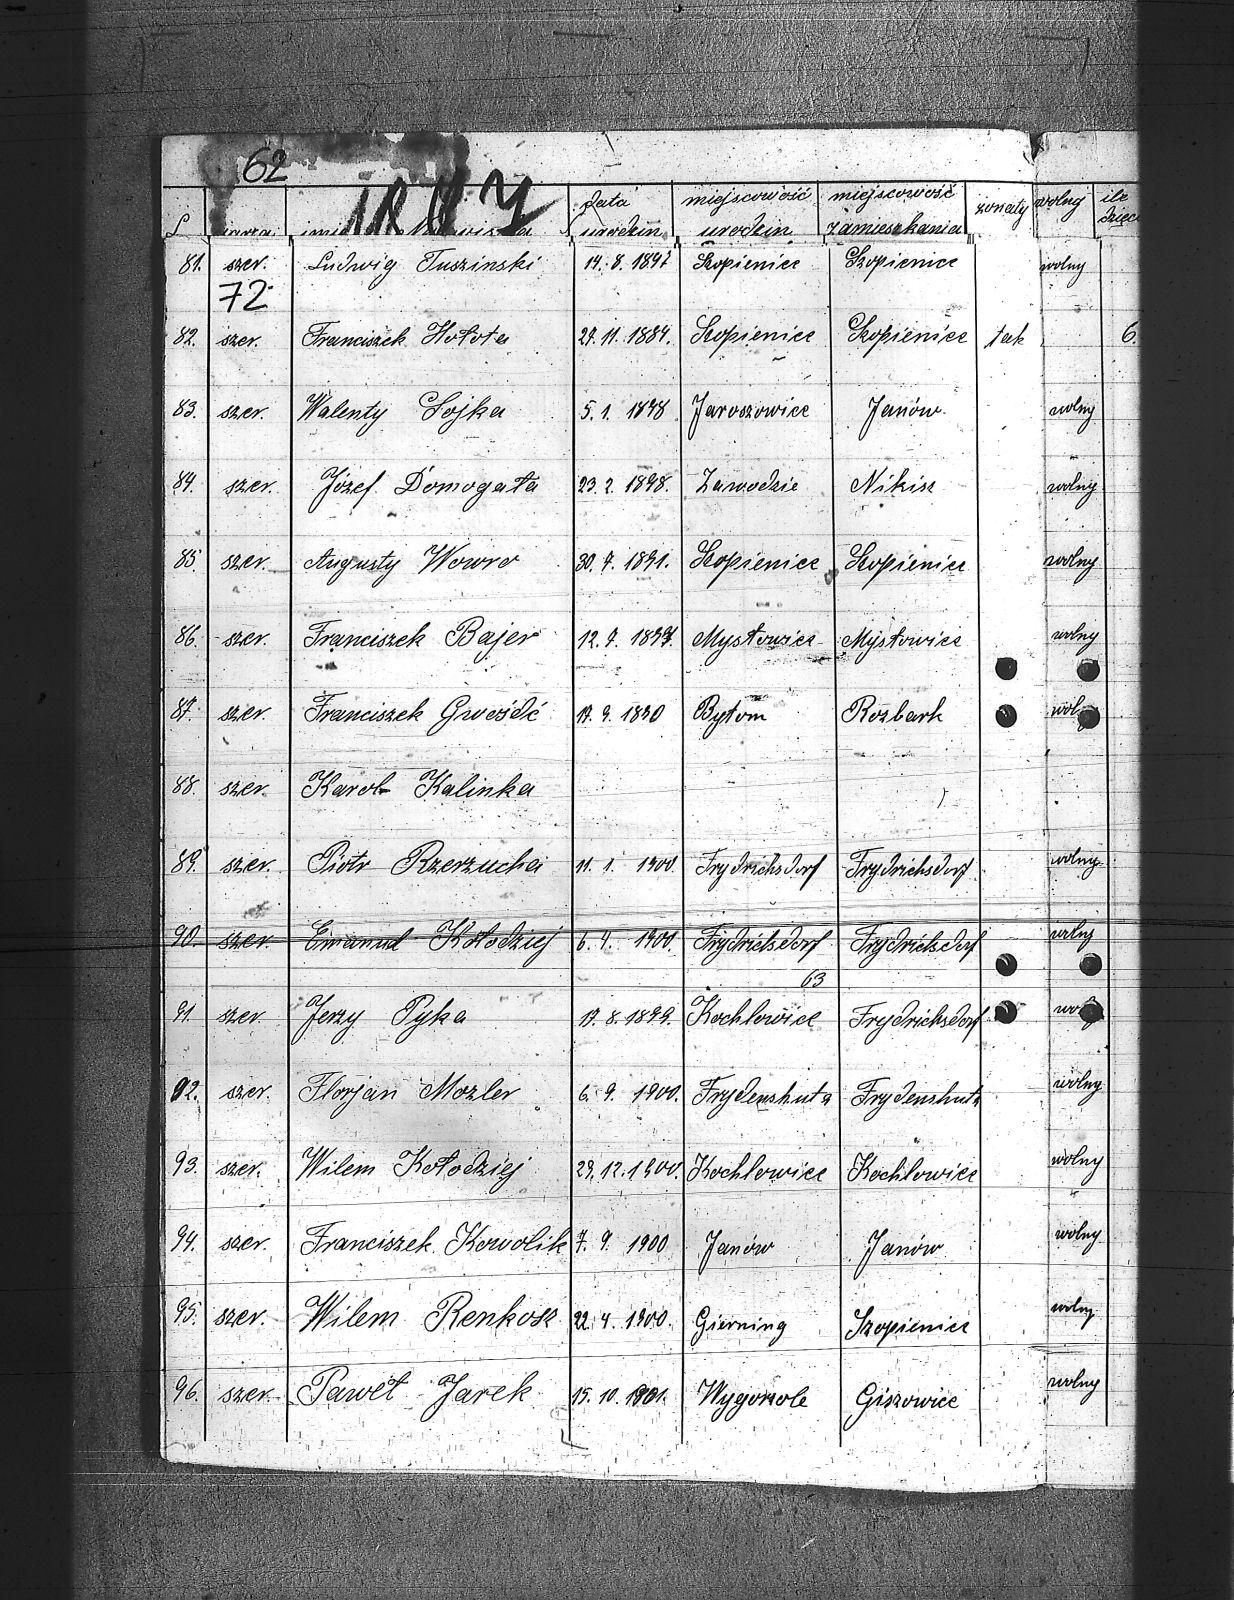 62
data miejscowość miejscowość żonaty wolny ile
urodzin urodzin zamieszkania dzieci
81. szer. Ludwig Tuszinski 14. 8. 1897 Szopienice Szopienice wolny
72
82. szer. Franciszek Hołota 27. 11. 1884. Szopienice Szopienice tak 6.
83. szer. Walenty Sojka 5. 1. 1898 Jaroszowice Janów wolny
84. szer. Józef Domogała 23. 2. 1898. Zawodzie Nikisz wolny
85. szer. Augusty Woworo 30. 7. 1891. Szopienice Szopienice wolny
86. szer. Franciszek Bajer 12. 7. Mysłowice Mysłowice wolny
87. szer. Franciszek Gwóźdź 17. 9. Bytom Rozbark wolny
88. szer. Karol Kalinka
89. szer. Piotr Rzerzucha 11. 1. 1900. Frydrichsdorf Frydrichsdorf wolny
90. szer. Emanuel Kołodziej 6. 4. 1900. Frydrichsdorf Frydrichsdorf wolny
63
91. szer. Jerzy Pyka 17. 8. 1899. Kochlowice Frydrichsdorf wolny
92. szer. Florjan Mozler 6. 9. 1900. Frydenshuta Frydenshuta wolny
93. szer. Wilem Kołodziej 29. 12. 1900. Kochlowice Kochlowice wolny
94. szer. Franciszek Kowolik 7. 9. 1900 Janów Janów wolny
95. szer. Wilem Renkosz 22. 4. 1900. Gierning Szopienice wolny
96. szer. Paweł Jarek 15. 10. 1901. Wygonole Giszowice wolny